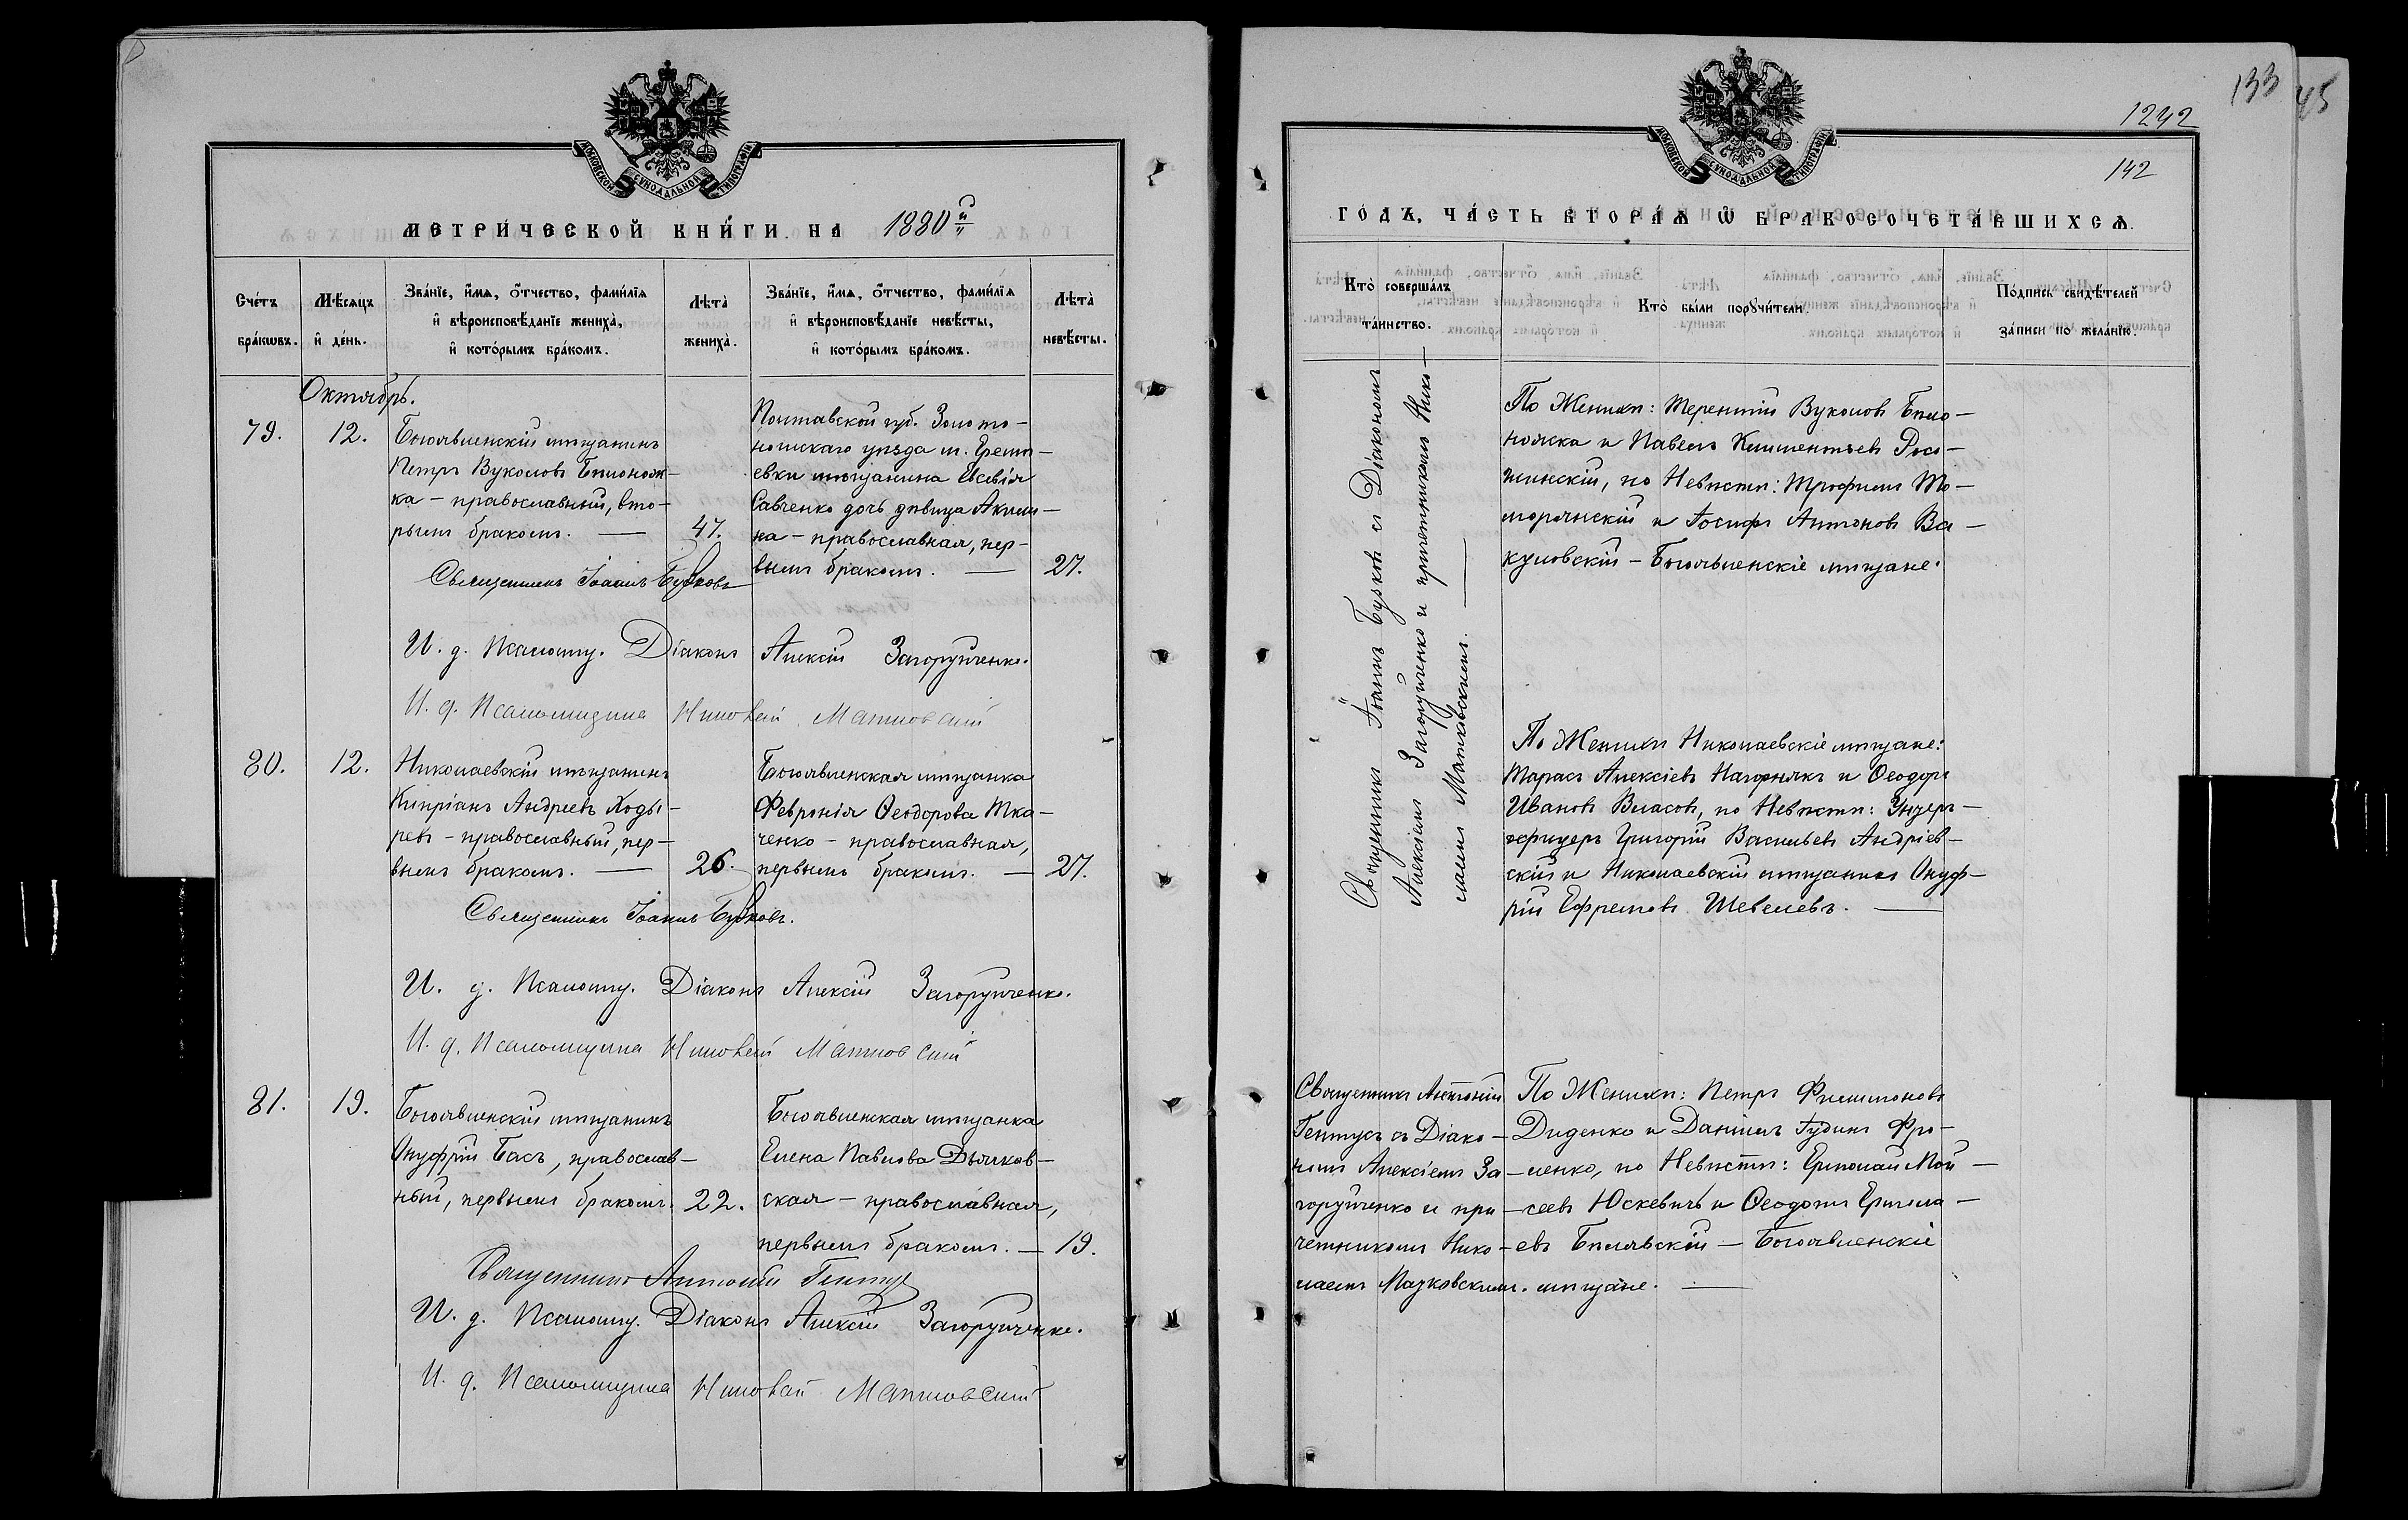 МОСКОВСКОЙ СѴНОДАЛЬНОЙ ТИПОГРАФІИ
МЕТРИЧЕСКОЙ КНИГИ НА 1880й
Счетъ браковъ.
Мѣсяцъ и день.
Званіе, имя, отчество, фамилія
и вѣроисповѣданіе жениха,
и которымъ бракомъ.
Лѣта
жениха.
Званіе, имя, отчество, фамилія
и вѣроисповѣданіе невѣсты,
и которымъ бракомъ.
Лѣта
невѣсты.
Октябрь.
79.
12.
Богоявленскій мѣщанинъ
Петръ Вуколовъ Бѣлонож-
ка – православный, вто-
рымъ бракомъ. —
47.
Полтавской губ. Золото-
ношскаго уѣзда м.
евки мѣщанина Евсевія
Савченко дочь дѣвица Акили-
на – православная, пер-
вымъ бракомъ. —
27.
Священникъ Іоаннъ
И. д. Псаломщ. Діаконъ Алексій Загоруйченко.
И. д. Псаломщика Николай
80.
12.
Николаевскій мѣщанинъ
Кипріанъ Андреевъ Ходы-
ревъ – православный, пер-
вымъ бракомъ. —
26.
Богоявленская мѣщанка
Февронія Ѳеодорова Тка-
ченко – православная,
первымъ бракомъ. —
27.
Священникъ Іоаннъ
И. д. Псаломщ. Діаконъ Алексій Загоруйченко.
И. д. Псаломщика Николай
81.
19.
Богоявленскій мѣщанинъ
Онуфрій Басъ, православ-
ный, первымъ бракомъ.
22.
Богоявленская мѣщанка
Елена Павлова Дьячков-
ская – православная,
первымъ бракомъ. —
19.
Священникъ Антоній Гентус
И. д. Псаломщ. Діаконъ Алексій Загоруйченко.
И. д. Псаломщика Николай
133
45
1242
142
МОСКОВСКОЙ СѴНОДАЛЬНОЙ ТИПОГРАФІИ
ГОДЪ, ЧАСТЬ ВТОРАЯ Ѿ БРАКОСОЧЕТАВШИХСЯ.
Кто совершалъ
таинство.
Кто были поручители.
Подпись свидѣтелей
записи по желанію.
Священникъ Іоаннъ съ Діакономъ
Алексіемъ Загоруйченко и причетникомъ Нико-
лаемъ —
По Женихѣ: Терентій Вуколовъ Бѣло-
ножка и Павелъ Климентьевъ
по Невѣстѣ: Трофимъ
и Іосифъ Антоновъ Ва-
куловскій – Богоявленскіе мѣщане.
По Женихѣ Николаевскіе мѣщане:
Тарасъ Алексіевъ Нагорнякъ и Ѳеодоръ
Ивановъ Власовъ, по Невѣстѣ: Унтеръ-
офицеръ Григорій Васильевъ Андріев-
скій и Николаевскій мѣщанинъ Онуф-
рій Ефремовъ Шевелевъ. —
Священникъ Антоній
Гентусъ съ Діако-
номъ Алексіемъ За-
горуйченко и при-
четникомъ Нико-
лаемъ
По Женихѣ: Петръ Филимоновъ
Диденко и Даніилъ Іудинъ Фро-
ленко, по Невѣстѣ: Ермолай Мой-
сеевъ Юскевичъ и Ѳеодотъ Ермола-
евъ Бѣлявскій – Богоявленскіе
мѣщане. —